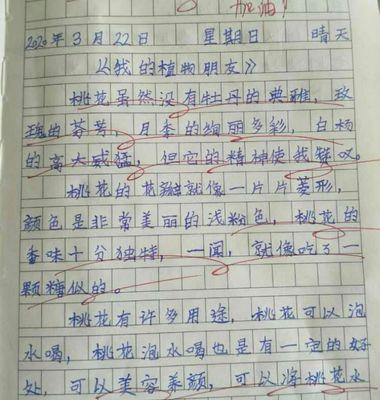 加油！
2020年3月22日 星期日 晴天
《我的植物朋友》
桃花虽然没有牡丹的典雅，玫
瑰的芬芳，月季的绚丽多彩，白杨
的高大威猛，但它的精神使我
桃花的花瓣就像一片片菱形，
颜色是非常美丽的浅粉色，桃花的
香味十分独特，一闻，就像吃了一
颗糖似的。
桃花有许多用途，桃花可以泡
水喝，桃花泡水喝也是有一定的好
处，可以美容养颜，可以将桃花水